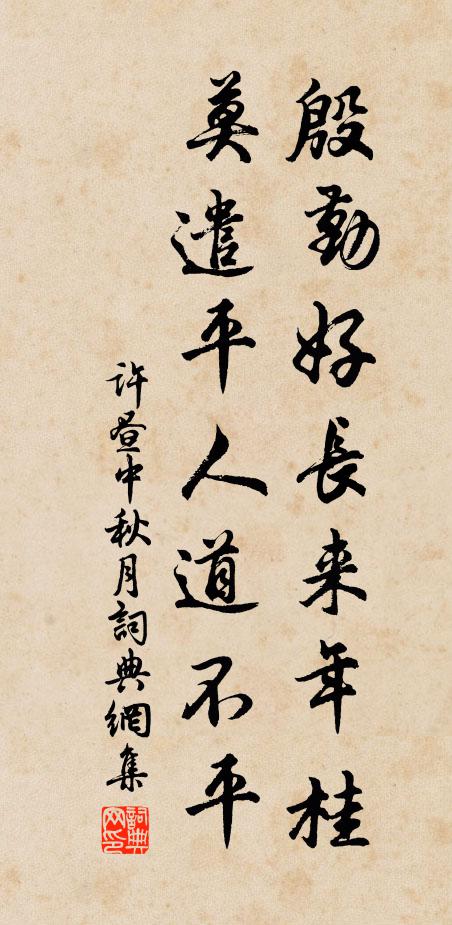 殷勤好長来年桂
莫遣平人道不平
許昼中秋月詞典網集
詞典
网印